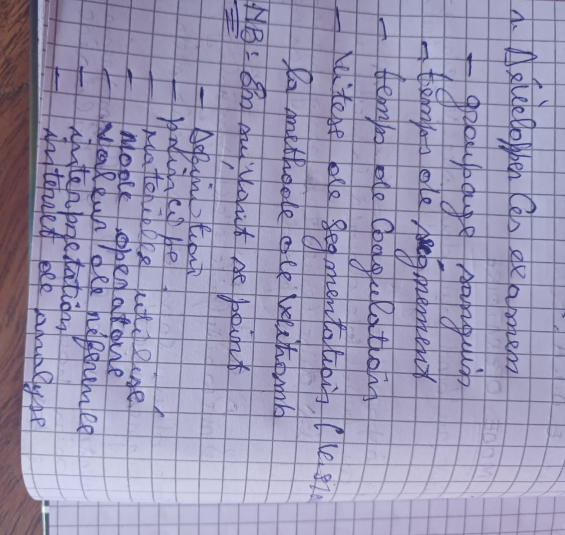 1. Développer ces examen
- groupage sanguin
- temps de ségnement
- temp de Coagulation
- vitese de Segmentation, (
la méthode de
NB: En suivant se point
- Définition
- principe.
- materielle utilisé
- Mode operatoire
- valeur de réference
- interpretation
- interret de analyse